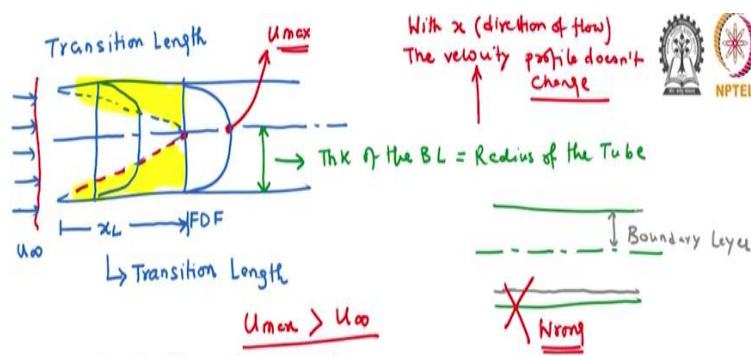 Transition Length
umax
With x (direction of flow)
The velocity profile doesn't
change
NPTEL
→ Thk of the BL = Radius of the Tube
xL
FDF
u∞
↳ Transition Length
Boundary Layer
umax > u∞
Wrong